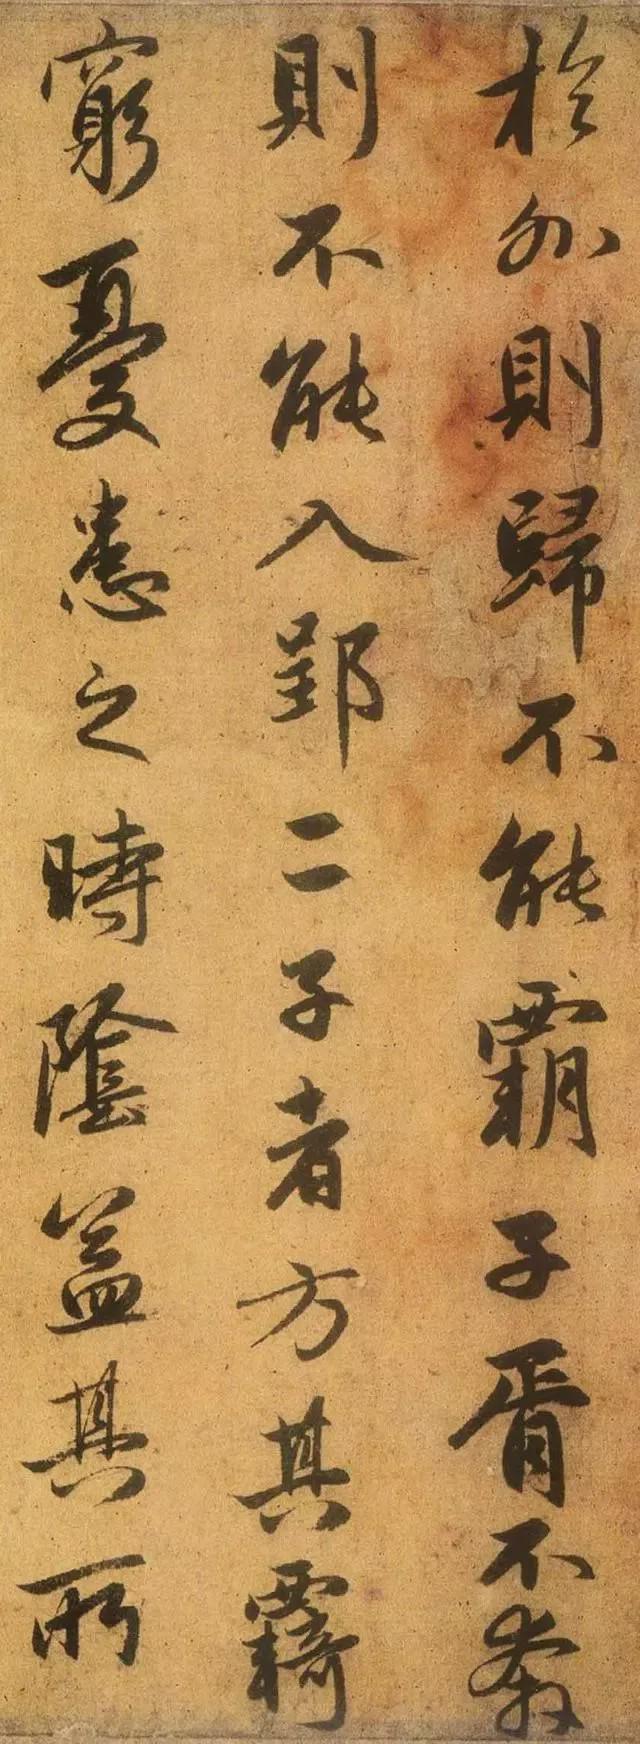 於外則歸不能覇子胥不奔
則不能入郢二子者方其覉
窮憂患之時陰益其所